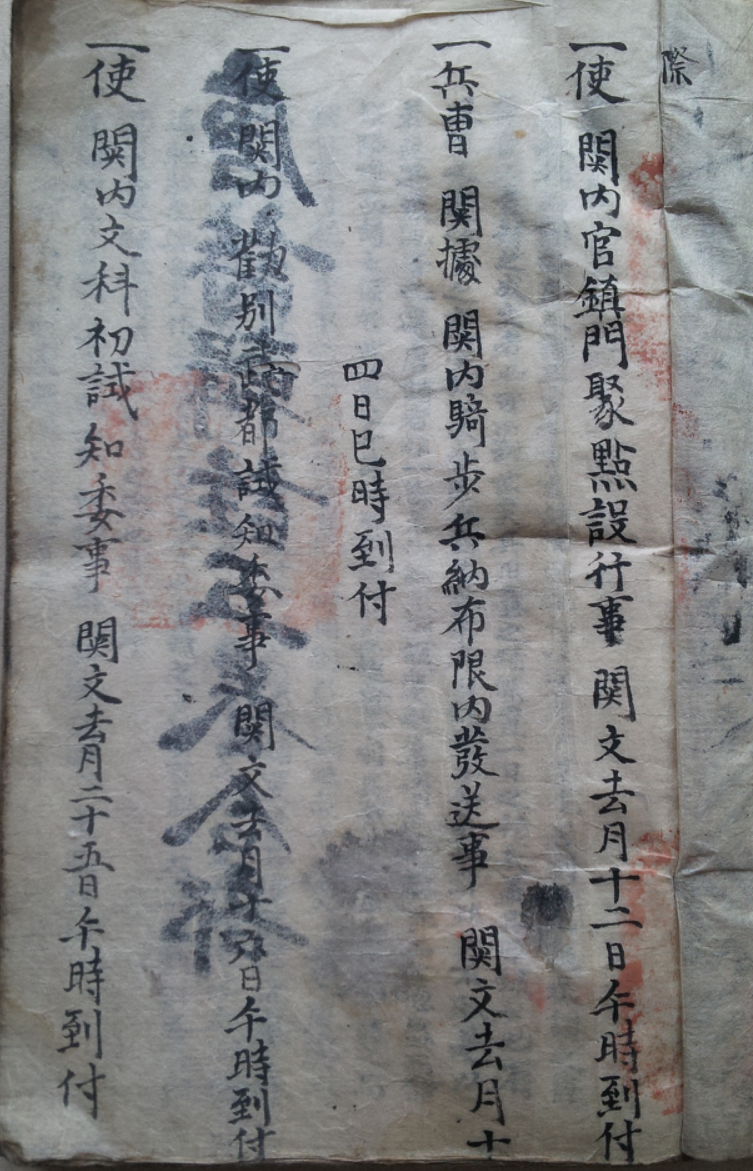 際
一使 関内官鎮門聚點設行事 関文去月十二日午時到付
一兵曹 関據 関内騎步兵納布限内發送事 関文去月十
四日巳時到付
一使 関内 勸別武都試知委事 関文去月十九日午時到付
一使 関内文科初試知委事 関文去月二十五日午時到付